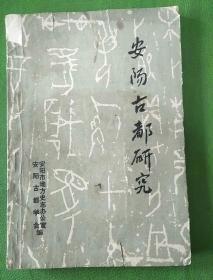 安阳古都研究
安阳市地方史志办公室
安阳古都学会编